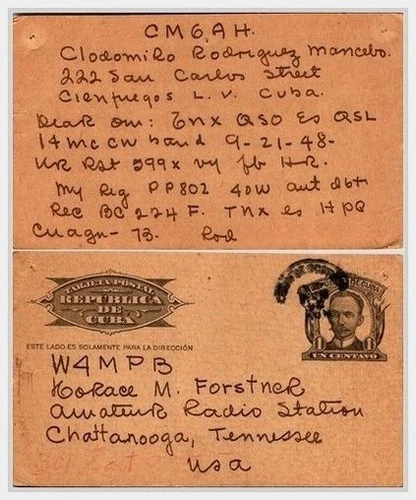 CM6AH.
Clodomiro Rodriguez Mancebo.
222 San Carlos Street
Cienfuegos L.V. Cuba.
Dear om: Tnx QSO Es QSL
14 mc cw band 9-21-48-
UR Rst 599x vy fb HR.
My Rig PP802 40W ant
Rec BC 224 F. Tnx es H PQ
Cuagn- 73. Rod
TARJETA POSTAL
REPUBLICA
DE
CUBA
ESTE LADO ES SOLAMENTE PARA LA DIRECCIÓN
1 1
UN CENTAVO
W4MPB
Horace M. Forstner
Amateur Radio Station
Chattanooga, Tennessee
USA